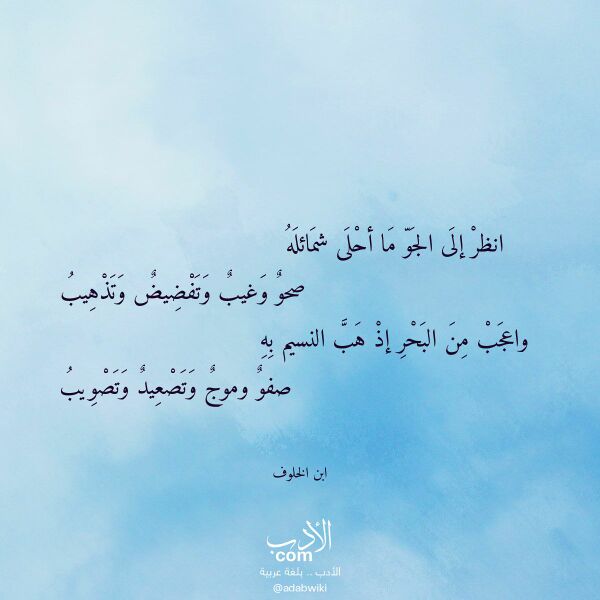 انظرْ إلَى الجَوّ مَا أحْلَى شمَائلَهُ
صحوٌ وَغيبٌ وَتَفْضِيضٌ وَتَذْهِيبُ
واعجَبْ مِنَ البَحْرِ إذْ هَبَّ النسيم بِهِ
صفوٌ وموجٌ وَتَصْعِيدٌ وَتَصْوِيبُ
ابن الخلوف
الأدب
com
الأدب .. بلغة عربية
@adabwiki